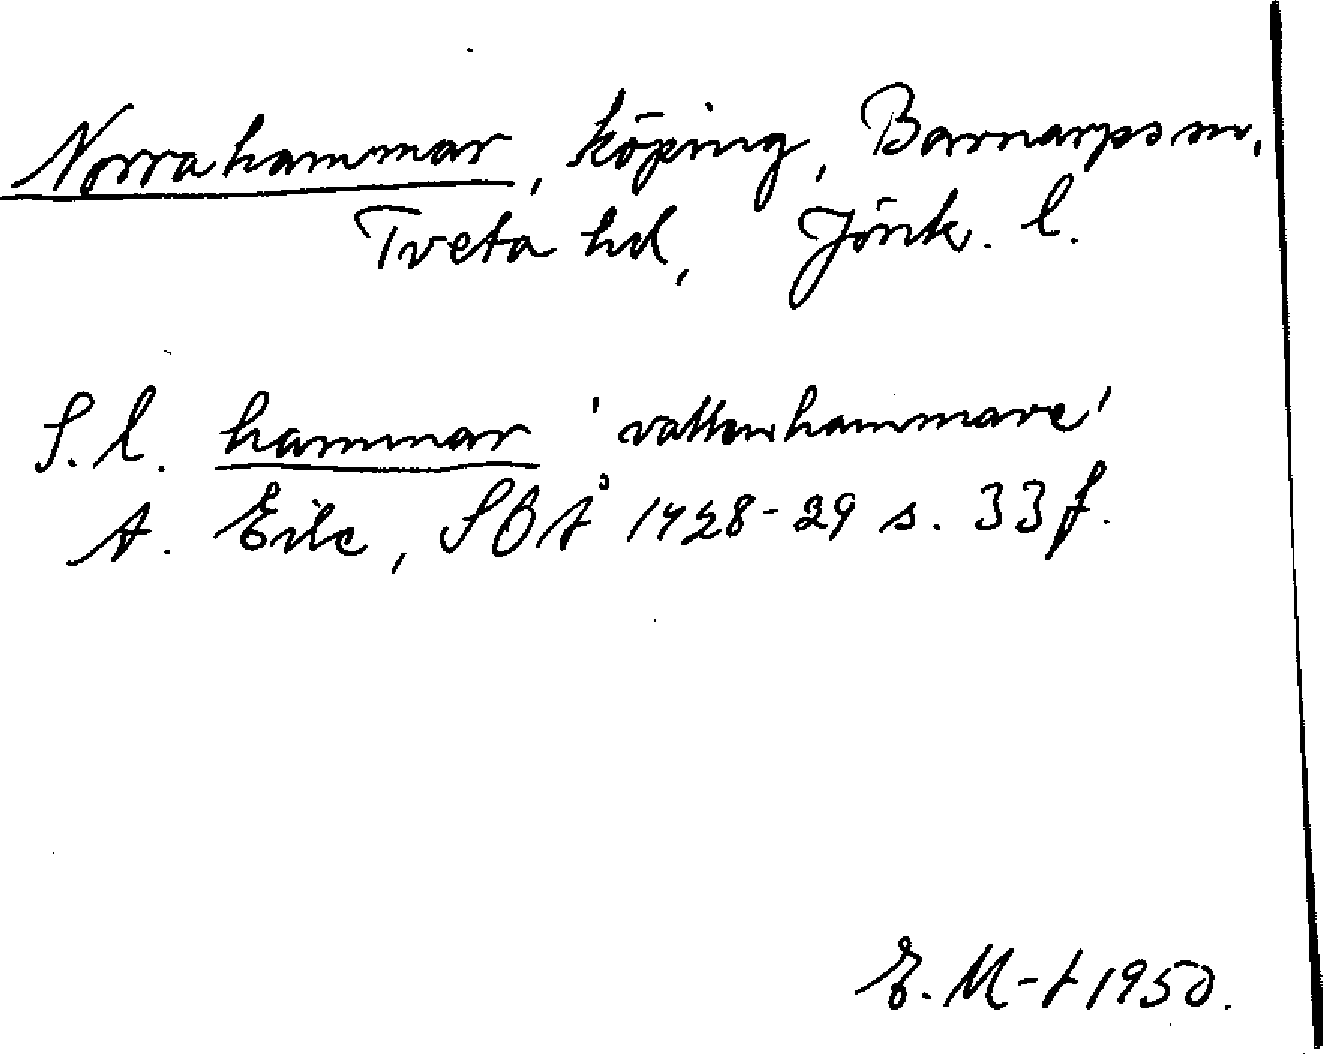 Norrahammar, köping, Barnarps sn,
Tveta hd, Jönk. l.
S. l. hammar 'vattenhammare'
A. Eile, SOÅ 1928-29 s. 33 f.
E. M-t 1950.